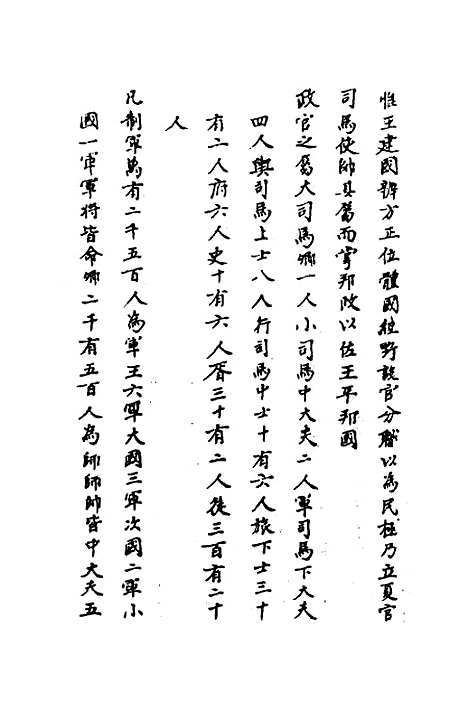 惟王建國辨方正位體國經野設官分職以為民極乃立夏官
司馬使帥其屬而掌邦政以佐王平邦國
政官之屬大司馬卿一人小司馬中大夫二人軍司馬下大夫
四人輿司馬上士八人行司馬中士十有六人旅下士三十
有二人府六人史十有六人胥三十有二人徒三百有二十
人
凡制軍萬有二千五百人為軍王六軍大國三軍次國二軍小
國一軍軍將皆命卿二千有五百人為師師帥皆中大夫五